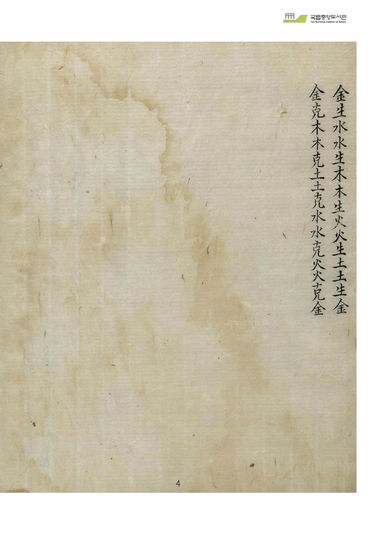 국립중앙도서관
THE NATIONAL LIBRARY OF KOREA
金生水水生木木生火火生土土生金
金克木木克土土克水水克火火克金
4